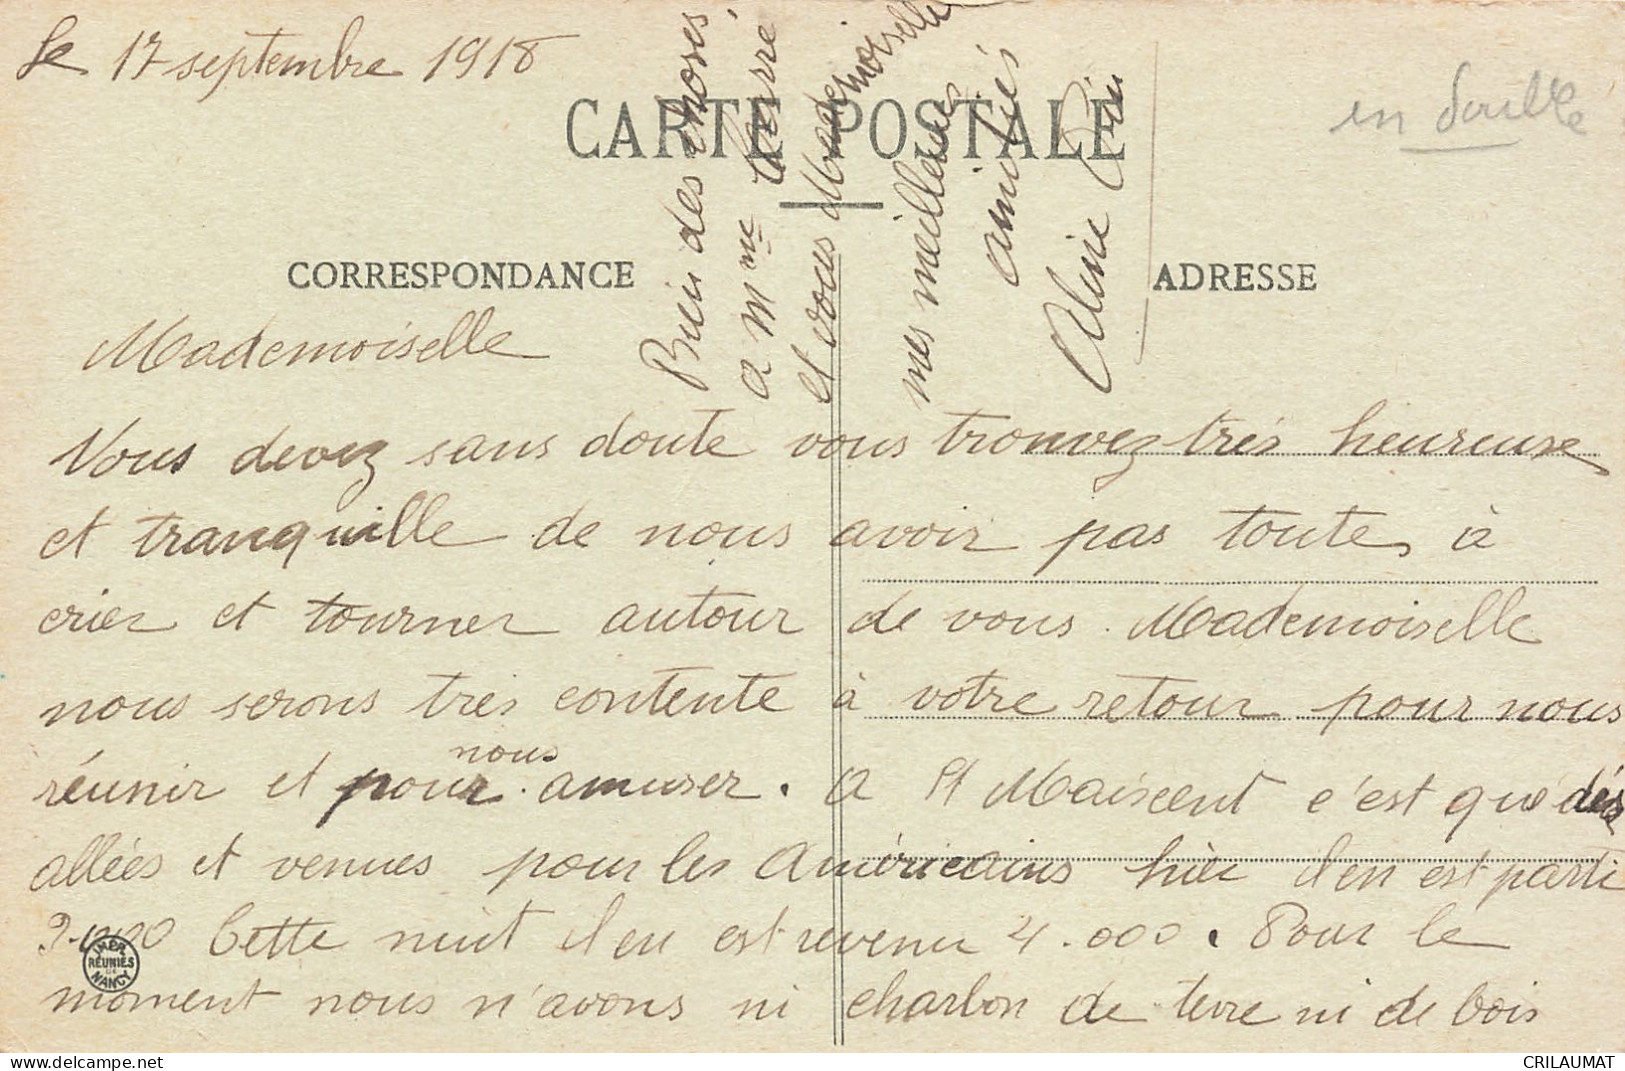 Le 17 septembre 1918
en double
CARTE POSTALE
CORRESPONDANCE
ADRESSE
Mademoiselle
Vous devez sans doute vous trouvez très heureuse
et tranquille de nous avoir pas toutes à
crier et tourner autour de vous. Mademoiselle
nous serons très contente à votre retour pour nous
réunir et pour nous amuser. A St Maixent c'est que dés
allées et venues pour les Américains hier il en est parti
Cette nuit il en est revenu 4.000. Pour le
moment nous n'avons ni charbon de terre ni de bois
Bien des choses
a Mme
et vous Mademoiselle
mes meilleures
amitiés
Aline
IMPR.
RÉUNIES
DE
NANCY
CRILAUMAT